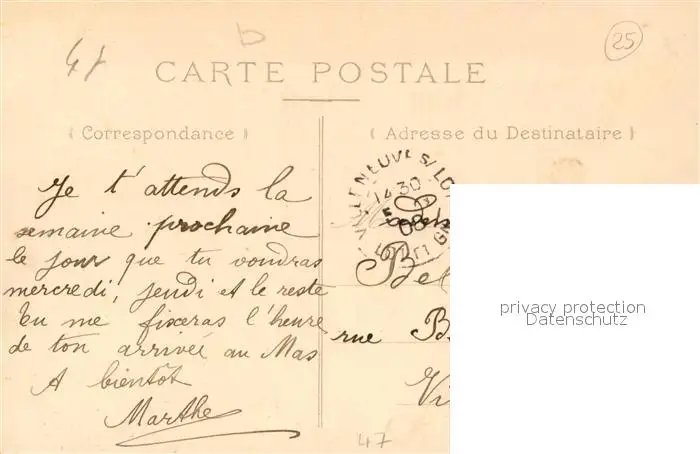 25
b
47
CARTE POSTALE
( Correspondance )
( Adresse du Destinataire )
Je t'attends la
semaine prochaine
le jour que tu voudras
mercredi, jeudi et le reste
tu me fixeras l'heure
de ton arrivée au Mas
A bientôt
Marthe
VILLENEUVE S/ LO
14 30
5
08
LOT ET G
Bel
rue B
Vi
47
privacy protection
Datenschutz